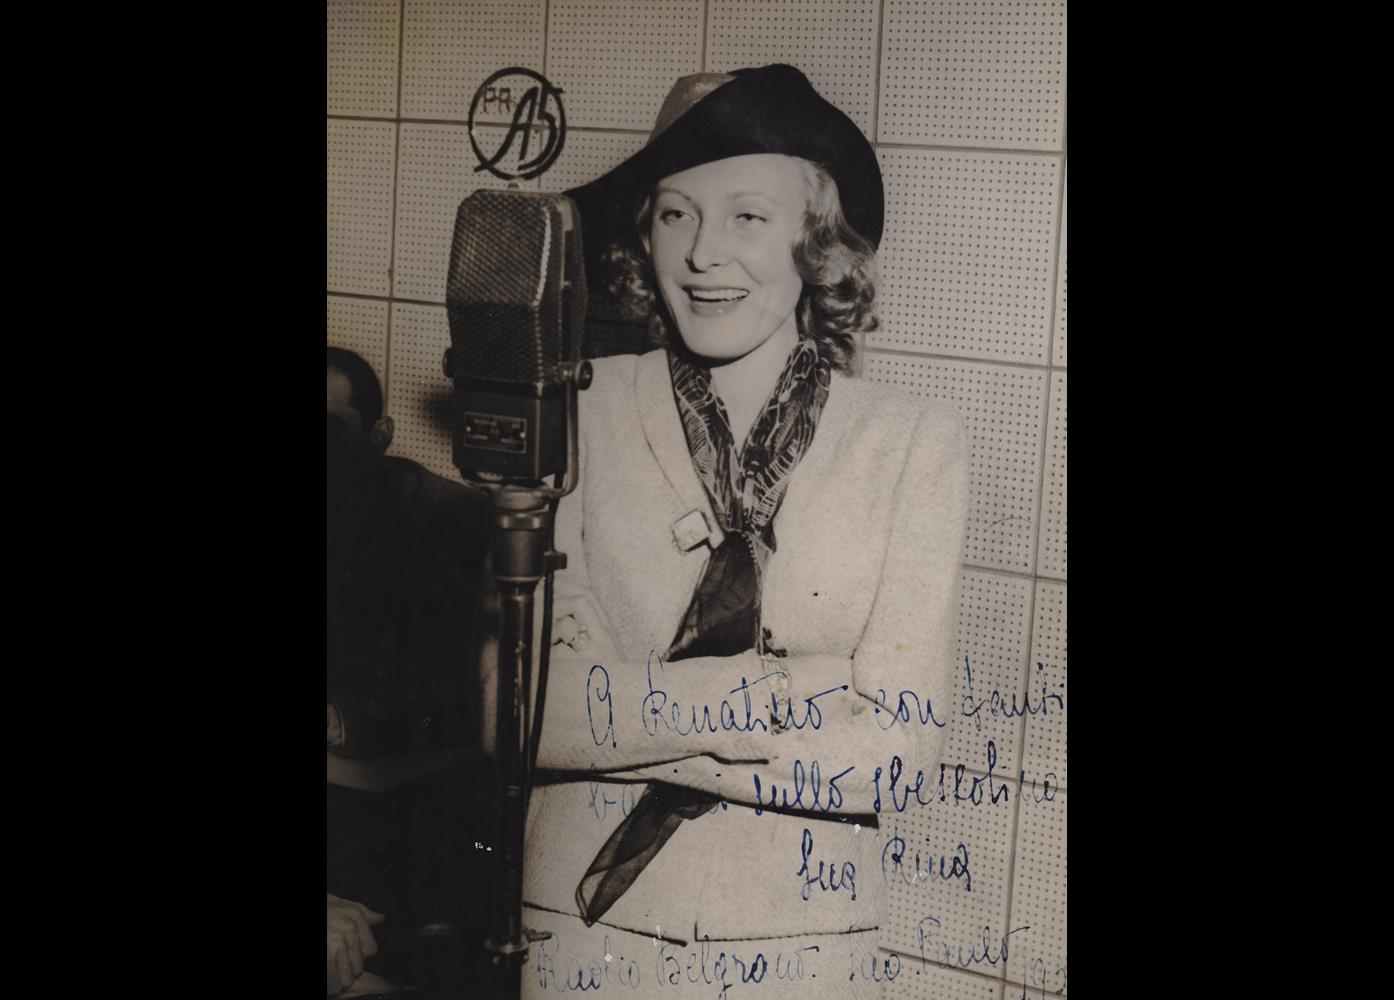 PR
A5
A Renatino con tanti
baci sullo
Sua Rina
Radio Belgrano. Sao Paulo